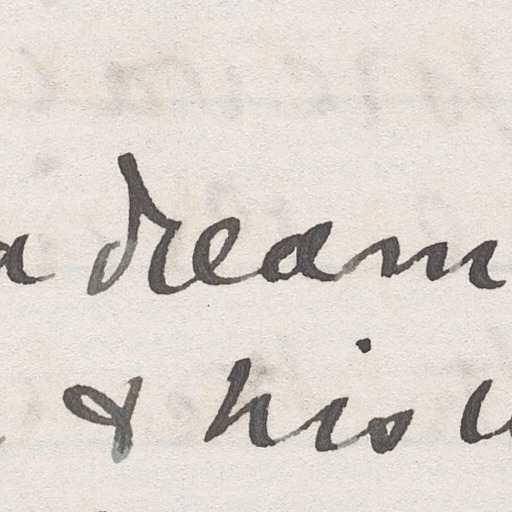 a dream
& his